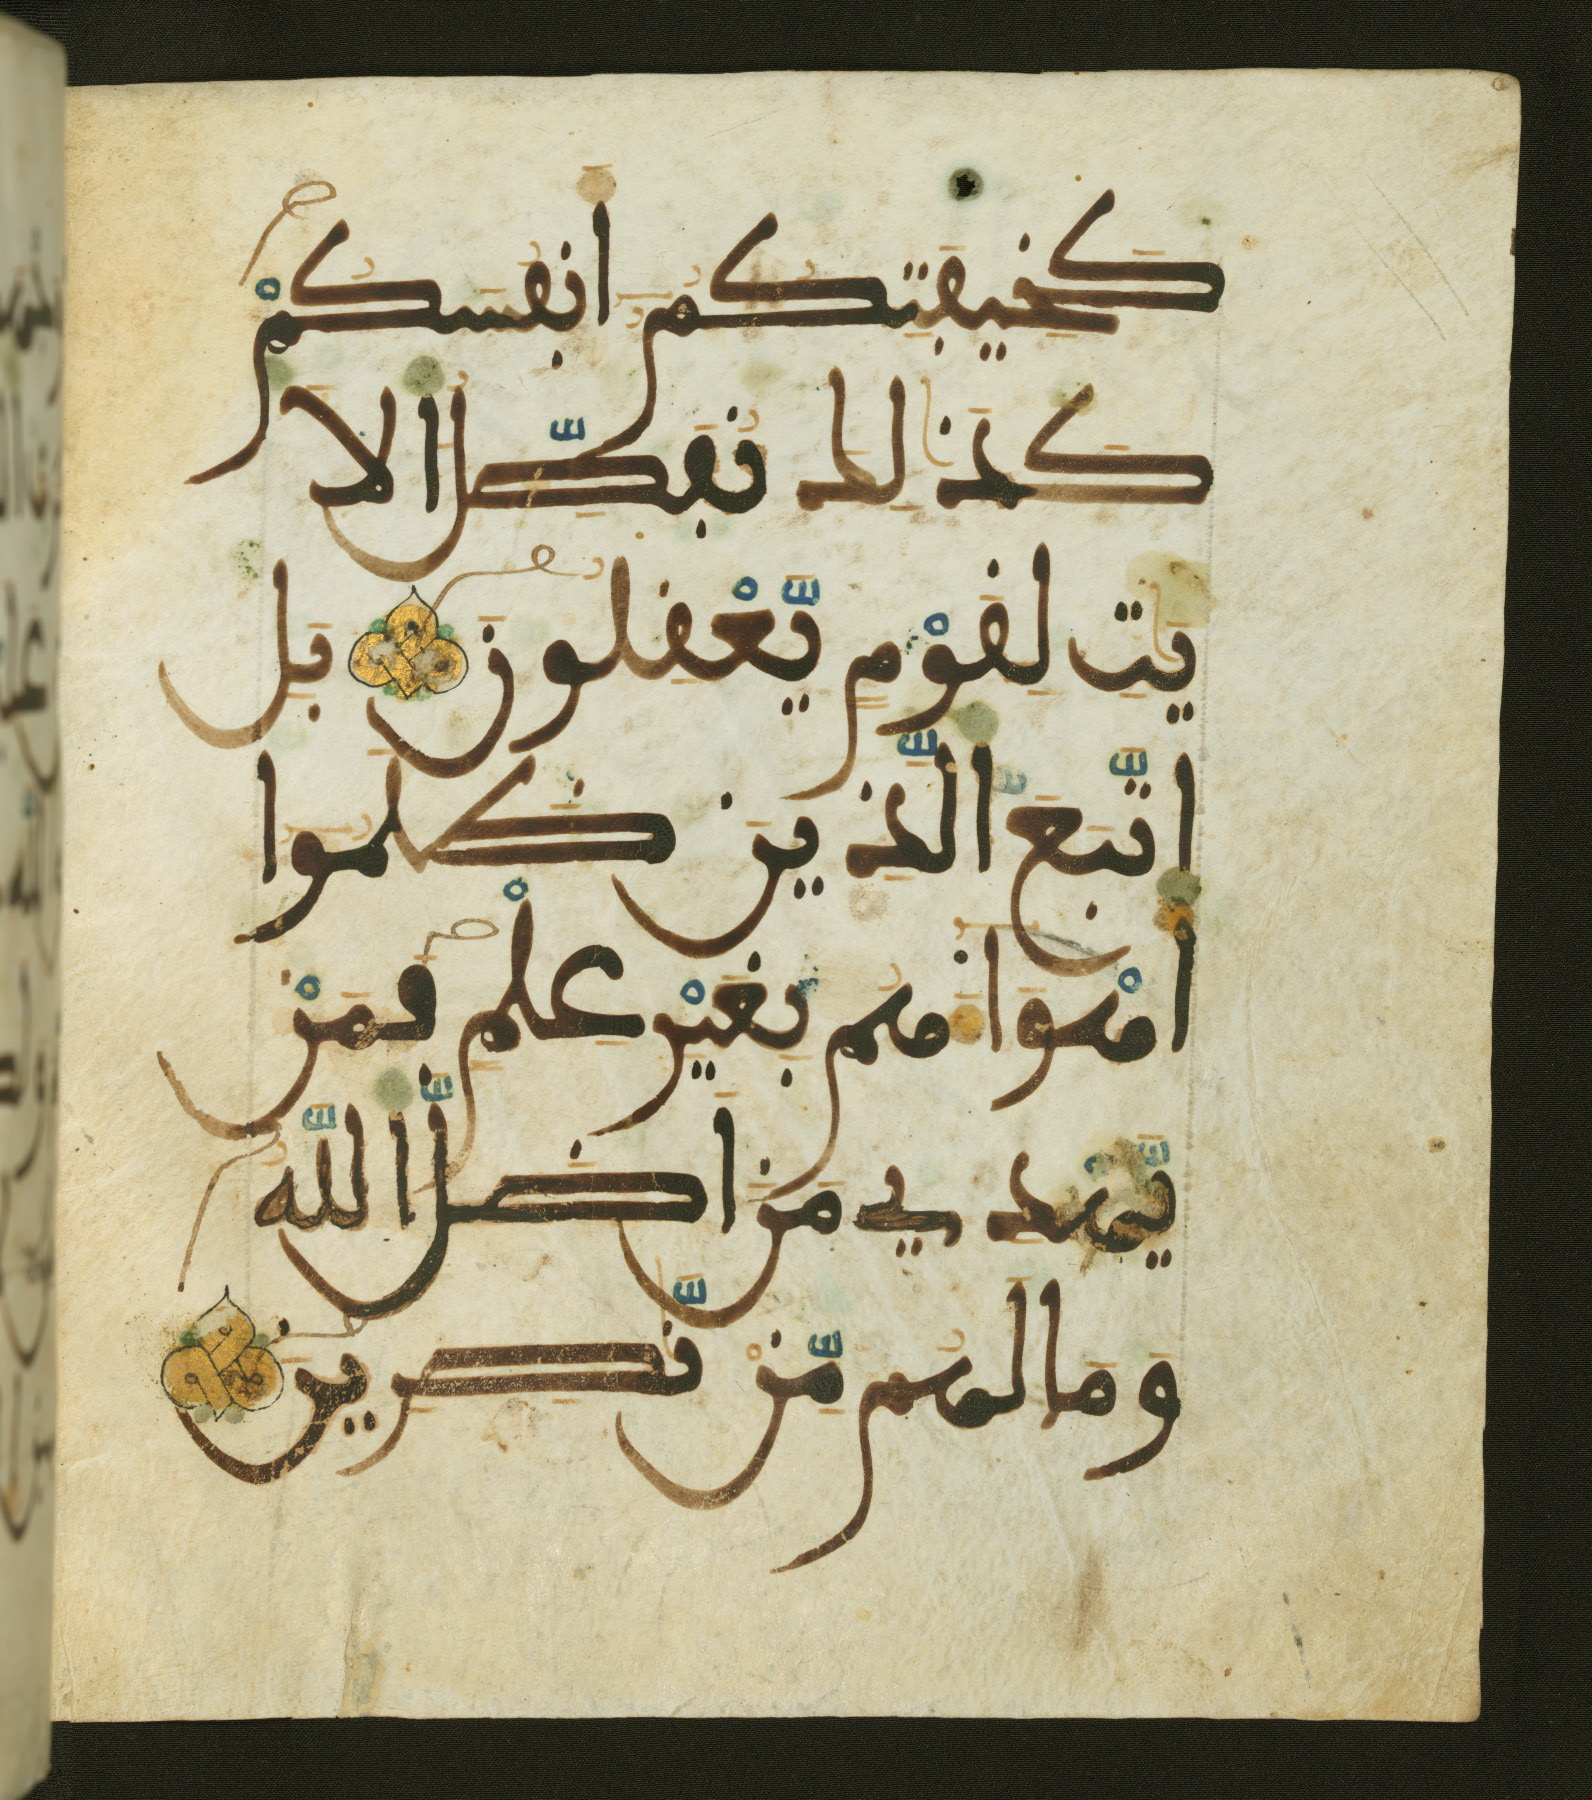 كخيفتكم أنفسكم
كذلك نفصل الا
يت لقوم يعقلون بل
اتبع الذين ظلموا
أهواءهم بغير علم فمن
يهدي من أضل الله
وما لهم من نصرين